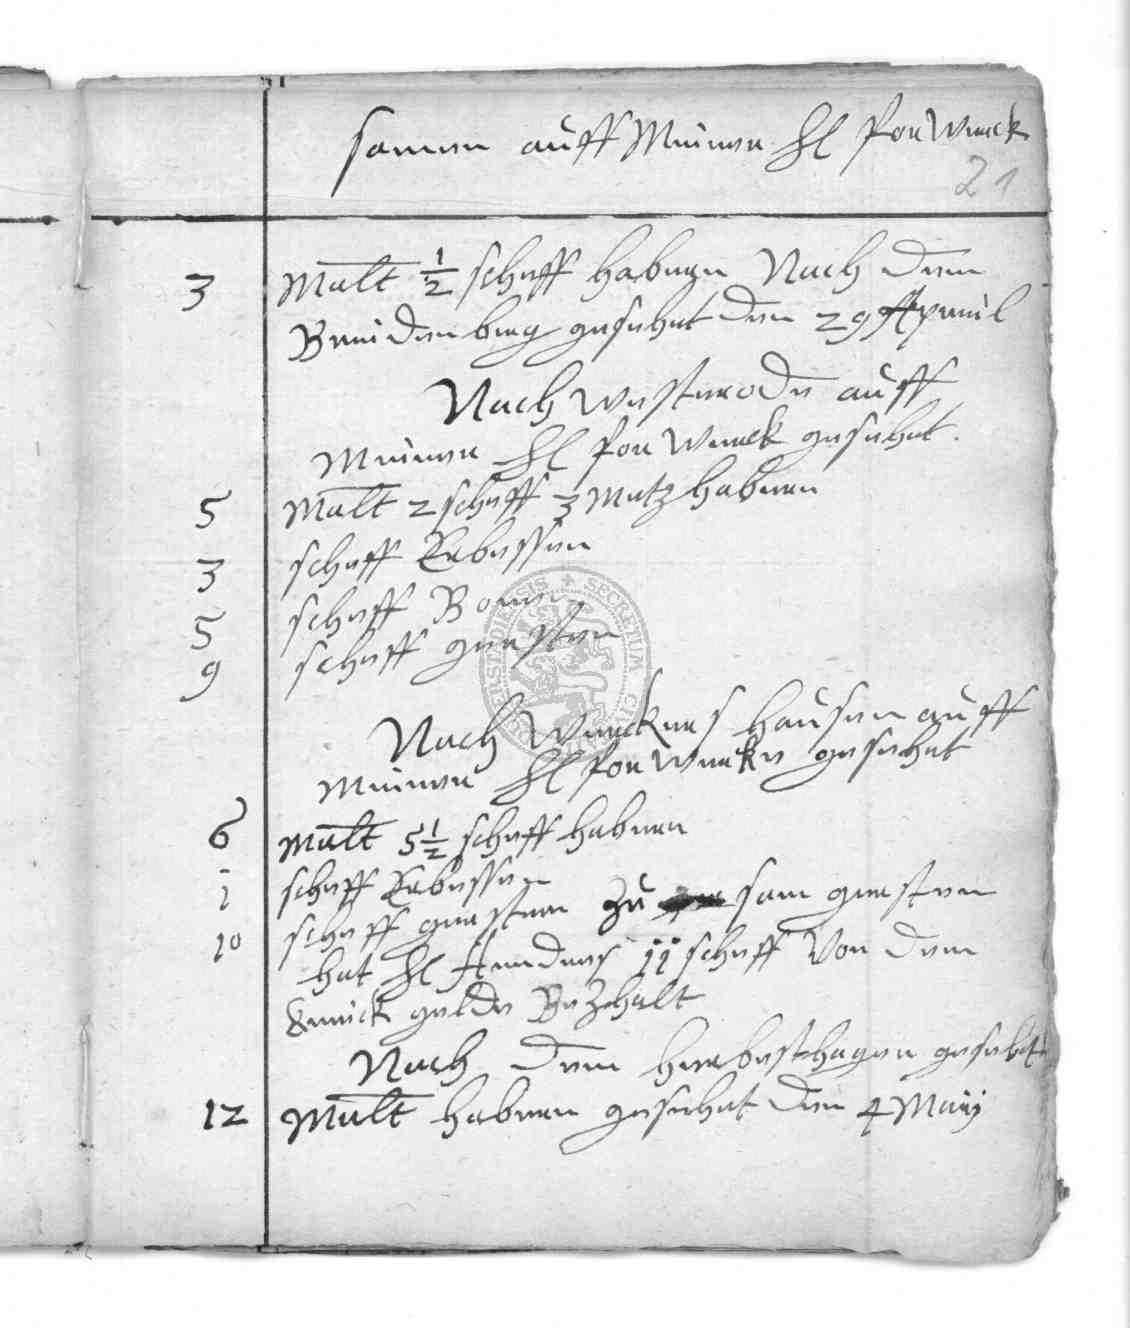 samen auff Meinen H forwerck
21
3 Malt ½ scheff habern Nach dem
Breidenberg gesehet den 29 Apreil
Nach westerode auff
Meinen H forwerck gesehet
5 Malt 2 scheff 3 Metz habern
3 scheff Erbessen
5 scheff Bonen
9 scheff gersten
Nach Werckers hausen auff
Meinen H forwercke gesehet
6 Malt 5½ scheff habern
1 scheff Erbessen
10 scheff gersten zu sam gersten
hat H Andres 11 scheff Von dem
gelde Bezhalt
Nach dem herbesthagen gesehet
12 Malt habern gesehet den 4 Maij
SECRETUM